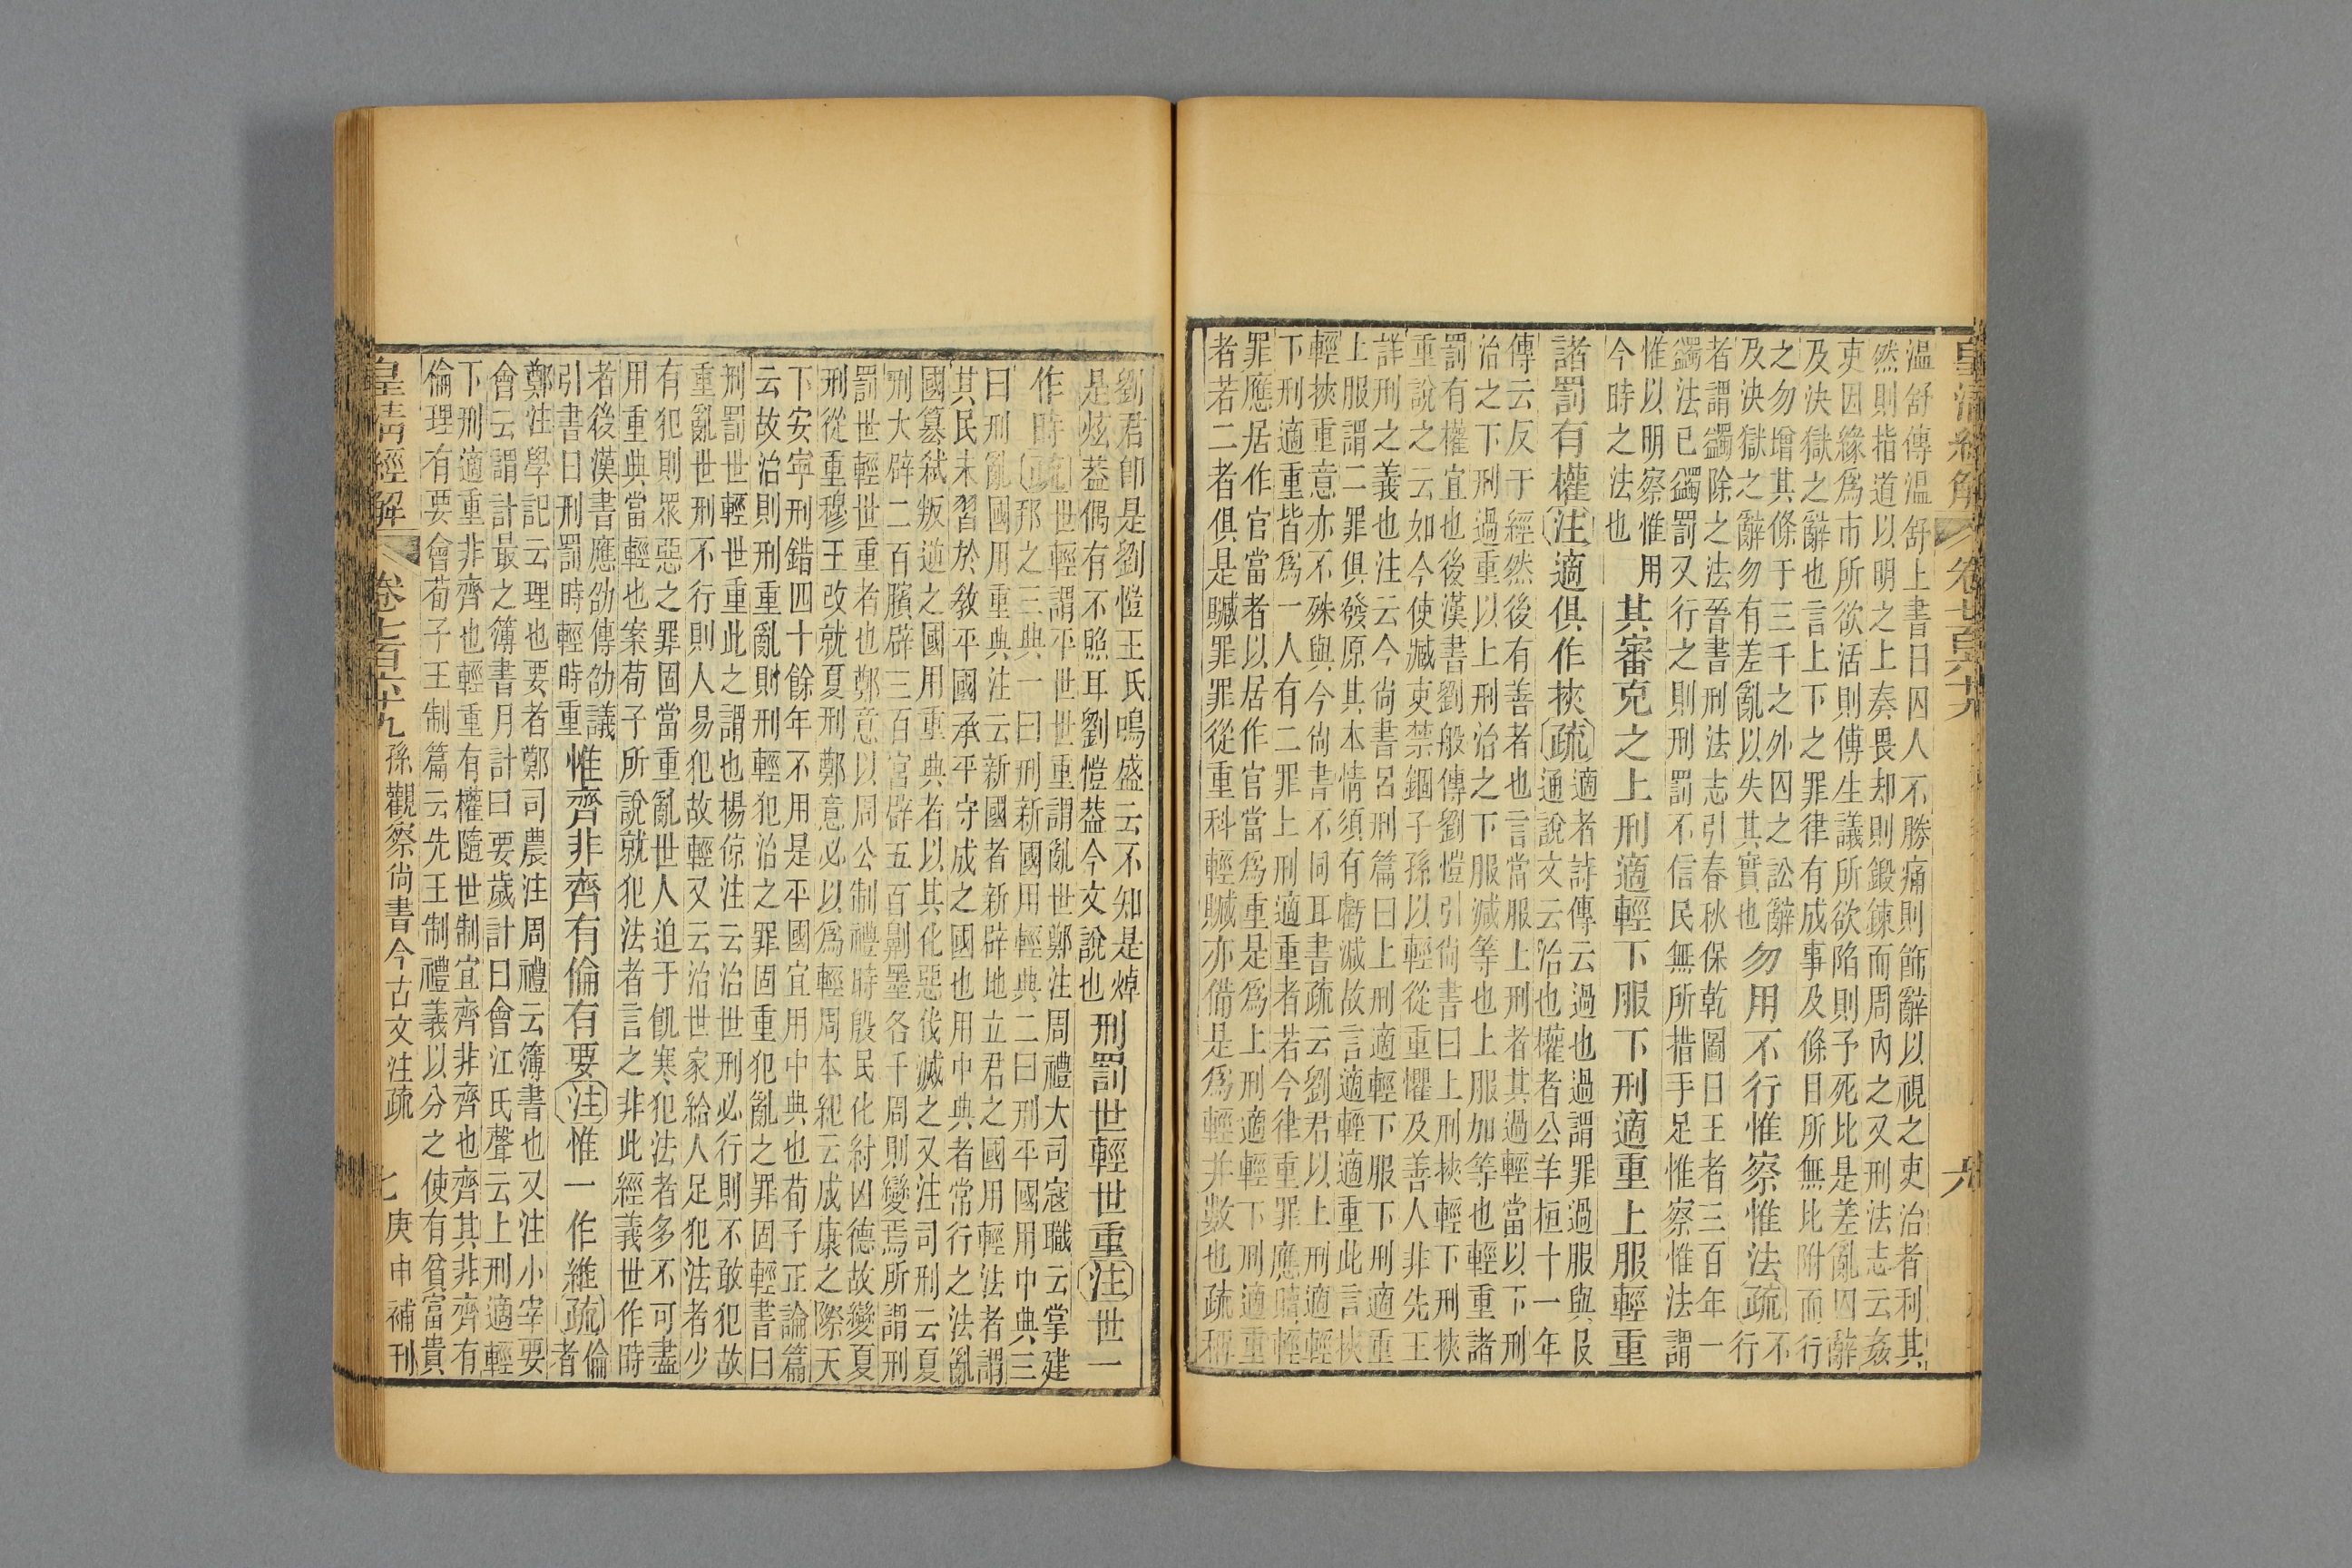 温舒傳温舒上書曰囚人不勝痛則飾辭以視之吏治者利其
然則指道以明之上奏畏却則鍛鍊而周内之又刑法志云姦
吏因緣爲市所欲活則傅生議所欲陷則予死比是差亂囚辭
及決獄之辭也言上下之罪律有成事及條目所無比附而行
之勿增其條于三千之外囚之訟辭
及決獄之辭勿有差亂以失其實也
勿用不行惟察惟法疏不
行
者謂蠲除之法晉書刑法志引春秋保乾圖曰王者三百年一
蠲法已蠲罰又行之則刑罰不信民無所措手足惟察惟法謂
惟以明察惟用
今時之法也
其審克之上刑適輕下服下刑適重上服輕重
諸罰有權注適俱作挾疏適者詩傳云過也過謂罪過服與𠬝
通說文云治也權者公羊桓十一年
傳云反于經然後有善者也言當服上刑者其過輕當以下刑
治之下刑過重以上刑治之下服減等也上服加等也輕重諸
罰有權宜也後漢書劉般傳劉愷引尚書曰上刑挾輕下刑挾
重說之云如今使臧吏禁錮子孫以輕從重懼及善人非先王
詳刑之義也注云今尚書呂刑篇曰上刑適輕下服下刑適重
上服謂二罪俱發原其本情須有虧減故言適輕適重此言挾
輕挾重意亦不殊與今尚書不同耳書疏云劉君以上刑適輕
下刑適重皆爲一人有二罪上刑適重者若今律重罪應贖輕
罪應居作官當者以居作官當爲重是爲上刑適輕下刑適重
者若二者俱是贓罪罪從重科輕贓亦備是爲輕并數也疏稱
劉君卽是劉愷王氏鳴盛云不知是焯
是炫葢偶有不照耳劉愷葢今文說也
刑罰世輕世重注世一
作時疏世輕謂平世世重謂亂世鄭注周禮大司寇職云掌建
邦之三典一曰刑新國用輕典二曰刑平國用中典三
曰刑亂國用重典注云新國者新辟地立君之國用輕法者謂
其民未習於敎平國承平守成之國也用中典者常行之法亂
國簒弒叛逆之國用重典者以其化惡伐滅之又注司刑云夏
刑大辟二百臏辟三百宮辟五百劓墨各千周則變焉所謂刑
罰世輕世重者也鄭意以周公制禮時殷民化紂凶德故變夏
刑從重穆王改就夏刑鄭意必以爲輕周本紀云成康之際天
下安寧刑錯四十餘年不用是平國宜用中典也荀子正論篇
云故治則刑重亂則刑輕犯治之罪固重犯亂之罪固輕書曰
刑罰世輕世重此之謂也楊倞注云治世刑必行則不敢犯故
重亂世刑不行則人易犯故輕又云治世家給人足犯法者少
有犯則眾惡之罪固當重亂世人迫于飢寒犯法者多不可盡
用重典當輕也案荀子所說就犯法者言之非此經義世作時
者後漢書應劭傳劭議
引書曰刑罰時輕時重
惟齊非齊有倫有要注惟一作維疏倫
者
鄭注學記云理也要者鄭司農注周禮云簿書也又注小宰要
會云謂計最之簿書月計曰要歲計曰會江氏聲云上刑適輕
下刑適重非齊也輕重有權隨世制宜齊非齊也齊其非齊有
倫理有要會荀子王制篇云先王制禮義以分之使有貧富貴
皇清經解 卷七百五十九 孫觀察尙書今古文注疏 七 庚申補刊